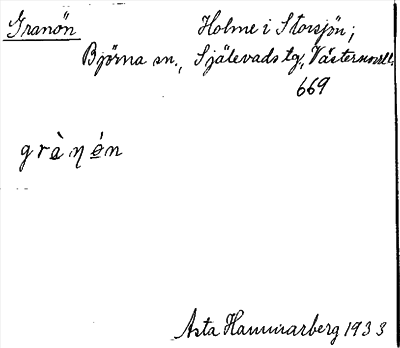 Granön Holme i Storsjön;
Björna sn., Själevads tg, Västernorrl.
669
grànǿn
Asta Hammarberg 1933